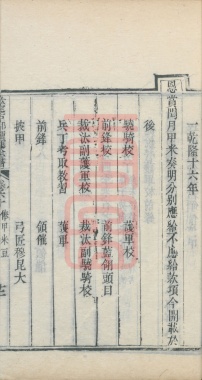 一乾隆十六年
恩賞閏月甲米奏明分別應給不應給款項今開載於
後
驍騎校 護軍校
前鋒校 前鋒藍翎頭目
裁汰副護軍校 裁汰副驍騎校
兵丁考取教習 護軍
前鋒 領催
披甲 弓匠穆昆大
俸甲米豆